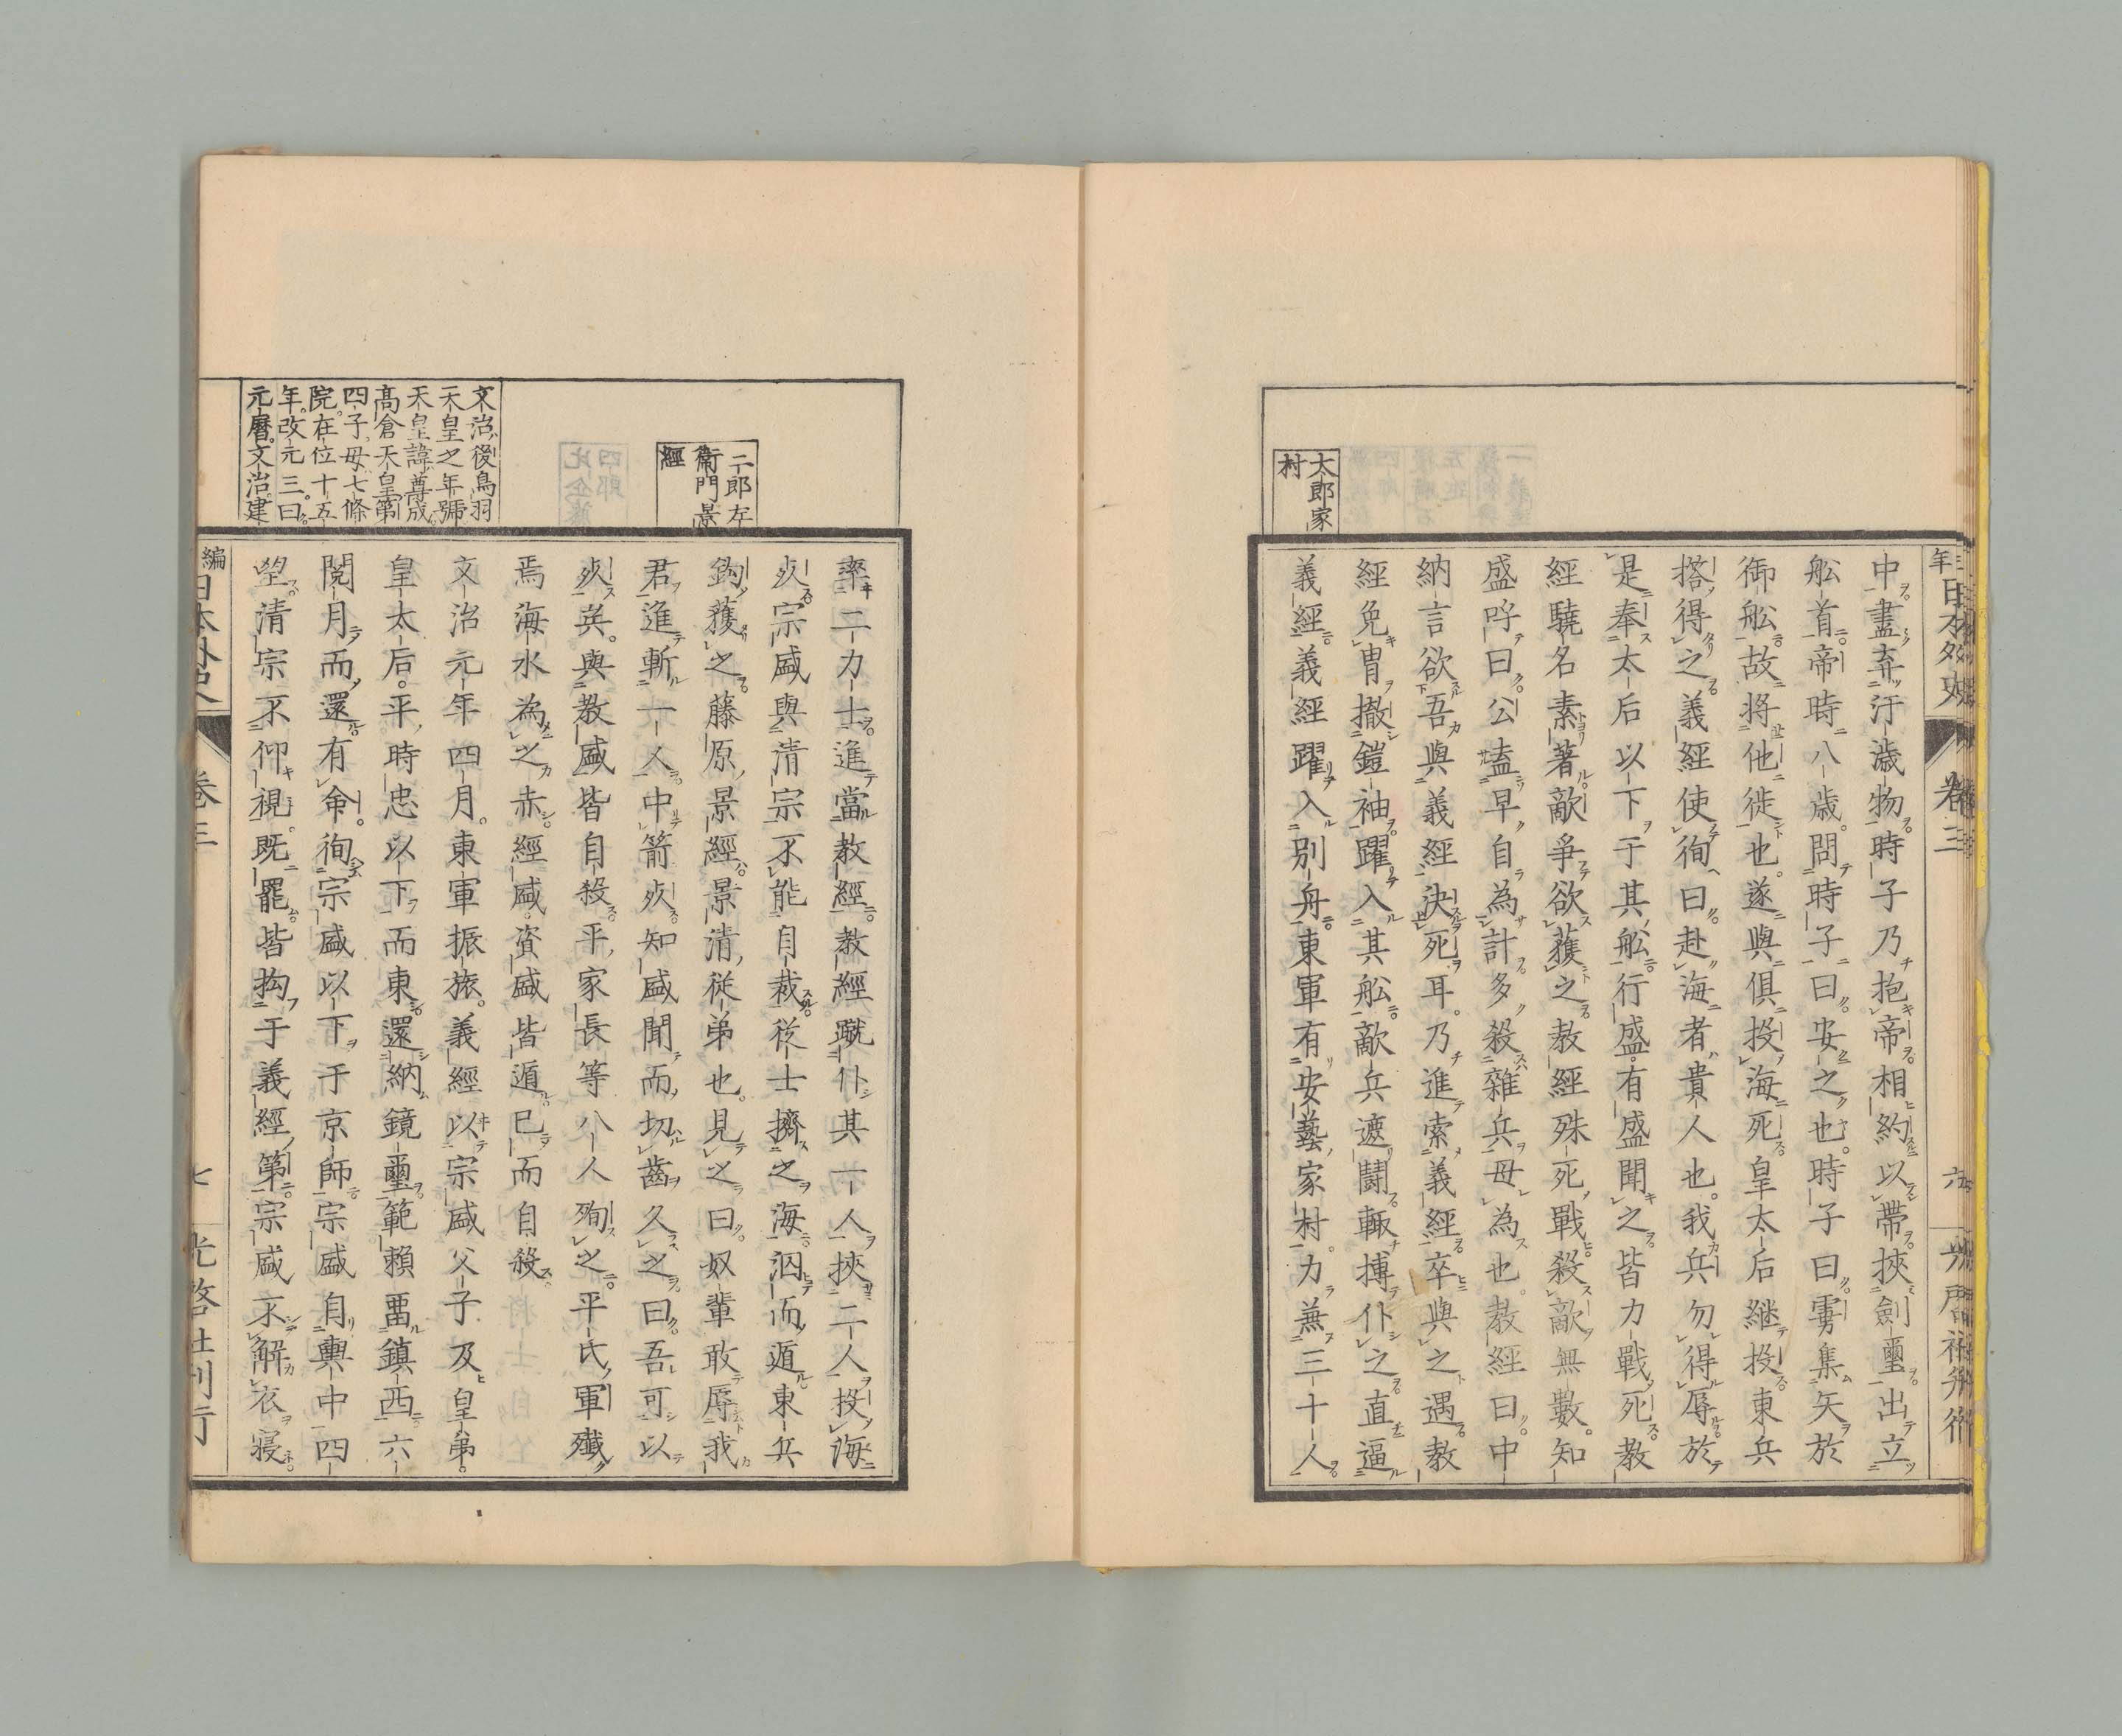 太郎家
村
中盡弃汙濊物時子乃抱帝相約以帶挾劍璽出立
舩首帝時八歳問時子曰安之也時子曰雾集矢於
御舩故將他徙也遂與俱投海死皇太后継投東兵
搭得之義經使徇曰赴海者貴人也我兵勿得辱於
是奉太后以下于其舩行盛有盛聞之皆力戰死教
經驍名素著敵爭欲獲之教經殊死戰殺敵無數知
盛呼曰公盍早自為計多殺雜兵毋為也教經曰中
納言欲吾與義經決死耳乃進索義經卒與之遇教
經免冑撤鎧袖躍入其舩敵兵遮鬪輙搏仆之直逼
義經義經躍入別舟東軍有安藝家村力兼三十人
卷三
六
二郎左
衞門景
經
文治後鳥羽
天皇之年號
天皇諱尊成
高倉天皇第
四子母七條
院在位十五
年改元三曰
元曆文治建
率二力士進當教經教經蹴仆其一人挾二人投海
死宗盛與清宗不能自裁從士擠之海泅而遁東兵
鈎獲之藤原景經景清從弟也見之曰奴輩敢辱我
君進斬一人中箭死知盛聞而切齒久之曰吾可以
死矣與教盛皆自殺平家長等八人殉之平氏軍殲
焉海水為之赤經盛資盛皆遁已而自殺
文治元年四月東軍振旅義經以宗盛父子及皇弟
皇太后平時忠以下而東還納鏡璽範賴畱鎮西六
閱月而還有命徇宗盛以下于京師宗盛自輿中四
望清宗不仰視既罷皆拘于義經第宗盛不解衣寢
編
日本外史
卷三
七
光啓社刊行